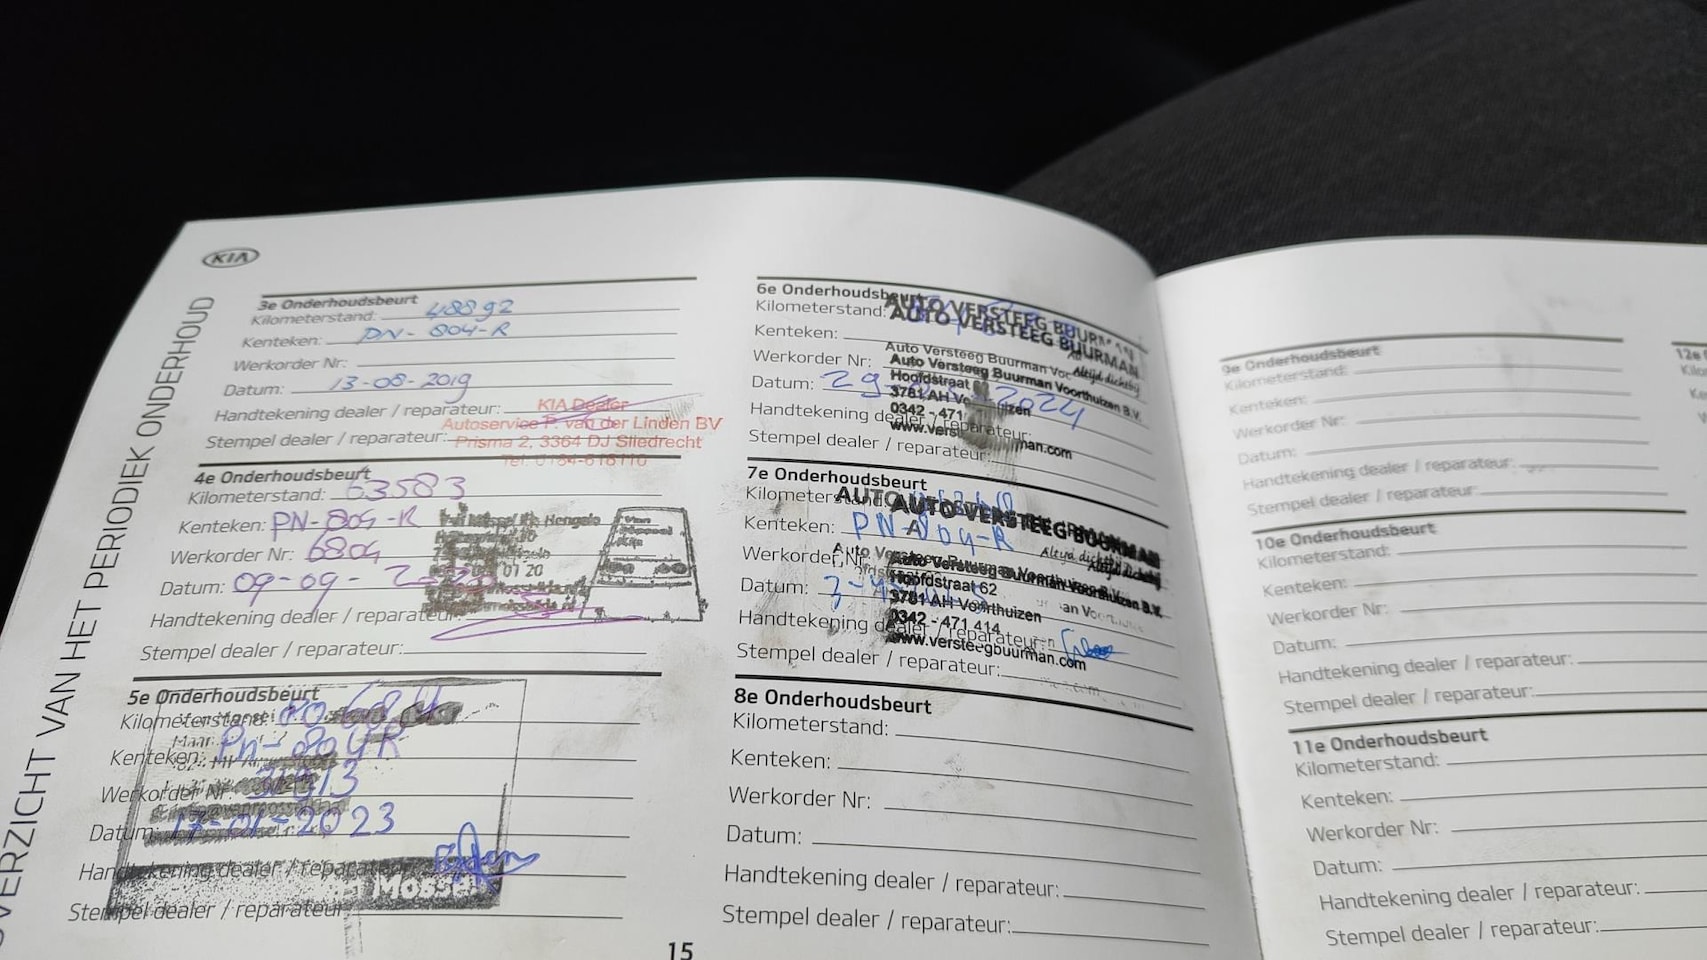 KIA
OVERZICHT VAN HET PERIODIEK ONDERHOUD
3e Onderhoudsbeurt
Kilometerstand: 48892
Kenteken: PN-804-R
Werkorder Nr:
Datum: 13-08-2019
Handtekening dealer / reparateur:
Stempel dealer / reparateur:
KIA Dealer
Autoservice P. van der Linden BV
Prisma 2, 3364 DJ Sliedrecht
Tel. 0184-618110
4e Onderhoudsbeurt
Kilometerstand: 63583
Kenteken: PN-804-R
Werkorder Nr: 6804
Datum: 09-09-2020
Handtekening dealer / reparateur:
Stempel dealer / reparateur:
5e Onderhoudsbeurt
Kilometerstand:
Kenteken: PN-804R
Werkorder Nr:
Datum: 17-01-2023
Handtekening dealer / reparateur:
Stempel dealer / reparateur:
15
6e Onderhoudsbeurt
Kilometerstand:
Kenteken:
Werkorder Nr:
Datum: 29 2024
Handtekening dealer / reparateur:
Stempel dealer / reparateur:
AUTO VERSTEEG BUURMAN
AUTO VERSTEEG BUURMAN
Altijd dichtbij
Auto Versteeg Buurman
Auto Versteeg Buurman Voorthuizen B.V.
Hoofdstraat
3781 AH
0342 - 471
7e Onderhoudsbeurt
Kilometerstand:
Kenteken: PN-804-R
Werkorder Nr:
Datum:
Handtekening dealer / reparateur:
Stempel dealer / reparateur:
AUTO VERSTEEG BUURMAN
Altijd dichtbij
Auto Versteeg Buurman Voorthuizen B.V.
Hoofdstraat 62
3781 AH Voorthuizen
0342 - 471 414
www.versteegbuurman.com
8e Onderhoudsbeurt
Kilometerstand:
Kenteken:
Werkorder Nr:
Datum:
Handtekening dealer / reparateur:
Stempel dealer / reparateur:
9e Onderhoudsbeurt
Kilometerstand:
Kenteken:
Werkorder Nr:
Datum:
Handtekening dealer / reparateur:
Stempel dealer / reparateur:
10e Onderhoudsbeurt
Kilometerstand:
Kenteken:
Werkorder Nr:
Datum:
Handtekening dealer / reparateur:
Stempel dealer / reparateur:
11e Onderhoudsbeurt
Kilometerstand:
Kenteken:
Werkorder Nr:
Datum:
Handtekening dealer / reparateur:
Stempel dealer / reparateur:
12e